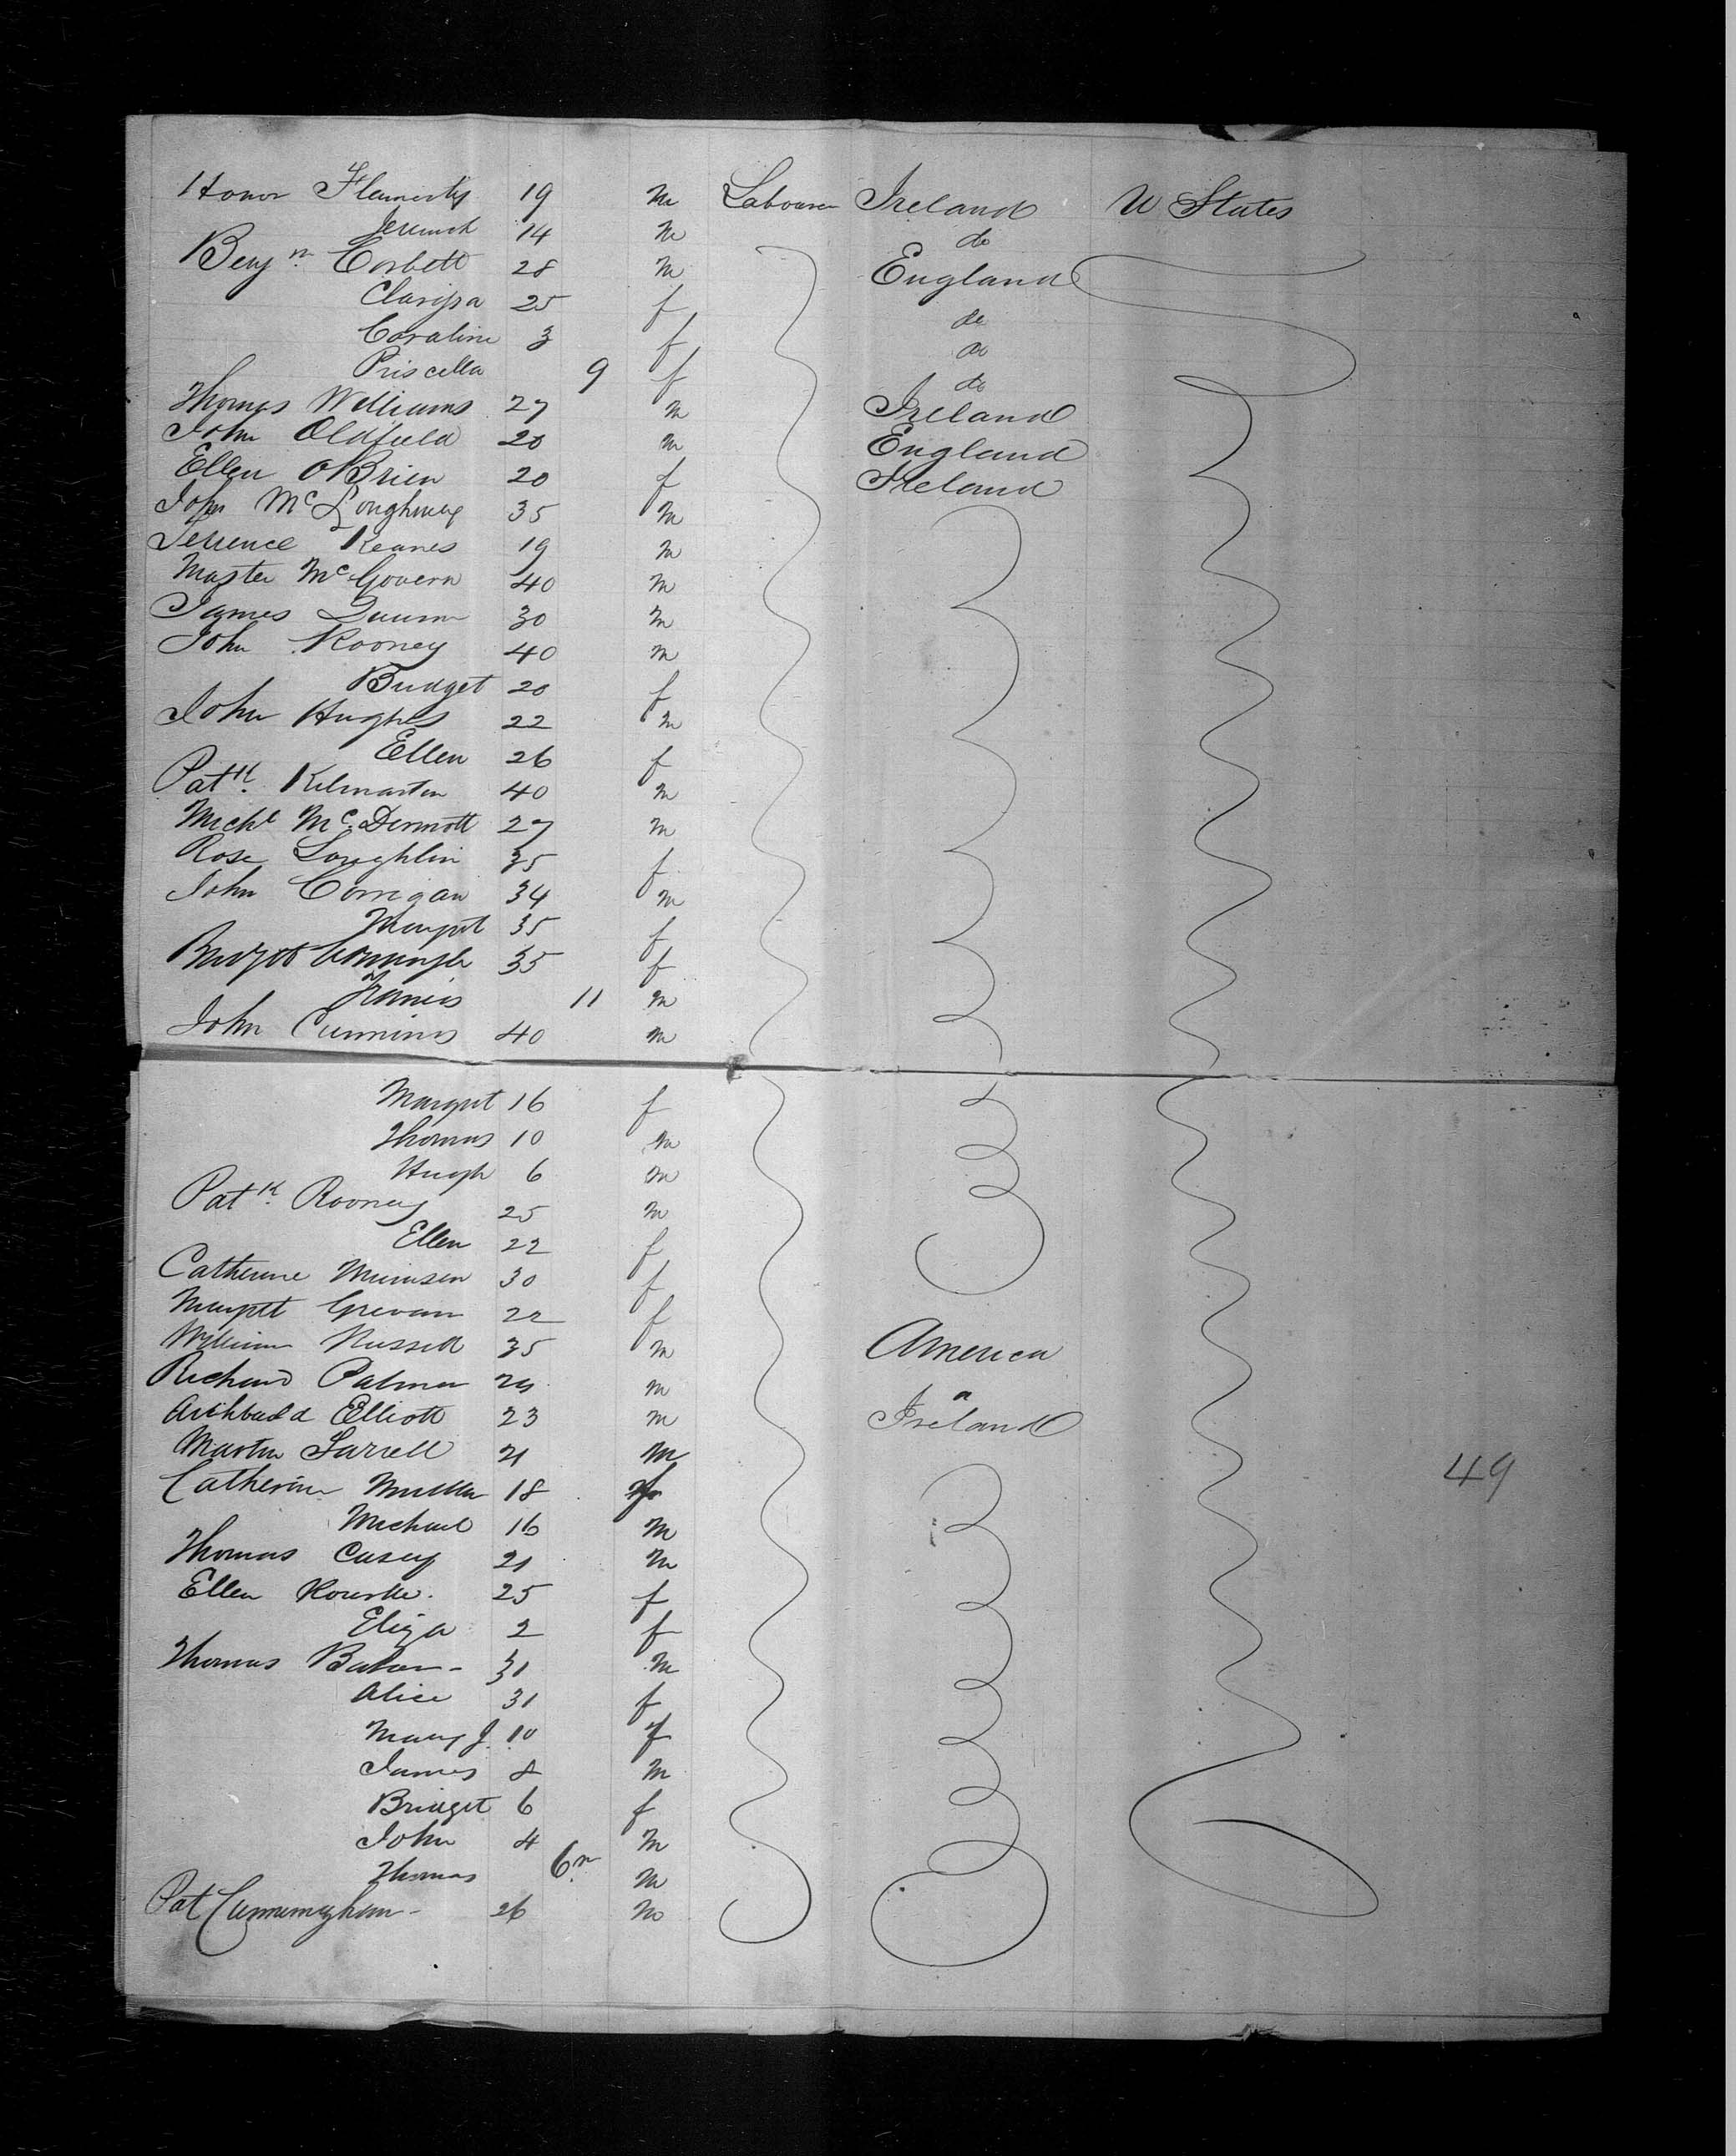 Honor Flamerty 19 m Labourer Ireland U States
Jeremiah 14 m do
Benjn. Corbett 28 m England
Clarissa 25 f do
Caroline 3 f do
Priscella 9 f do
Thomas Williams 27 m Ireland
John Oldfield 20 m England
Ellen O'Brien 20 f Ireland
John McLoughney 35 m
Terrence Keanes 19 m
McGovern 40 m
James Quinn 30 m
John Rooney 40 m
Bridget 20 f
John Hughes 22 m
Ellen 26 f
Patk. Kilmartin 40 m
Michl McDermott 27 m
Rose Loughlin 35 f
John Corrigan 34 m
Margret 35 f
Bridget 35 f
Francis 11 m
John Cummins 40 m
Margret 16 f
Thomas 10 m
Hugh 6 m
Patk. Rooney 25 m
Ellen 22 f
Catherine 30 f
Margett 22 f
William Russell 35 m America
Richard Palmer m "
Archibald Elliott 23 m Ireland
Martin Farrell 21 m
Catherine 18 f
Michael 16 m
Thomas Casey 21 m
Ellen Rourke. 25 f
Eliza 2 f
Thomas 31 m
Alice 31 f
Mary J. 10 f
James 8 m
Bridget 6 f
John 4 m
Thomas 6m m
Pat Cunningham 26 m
49